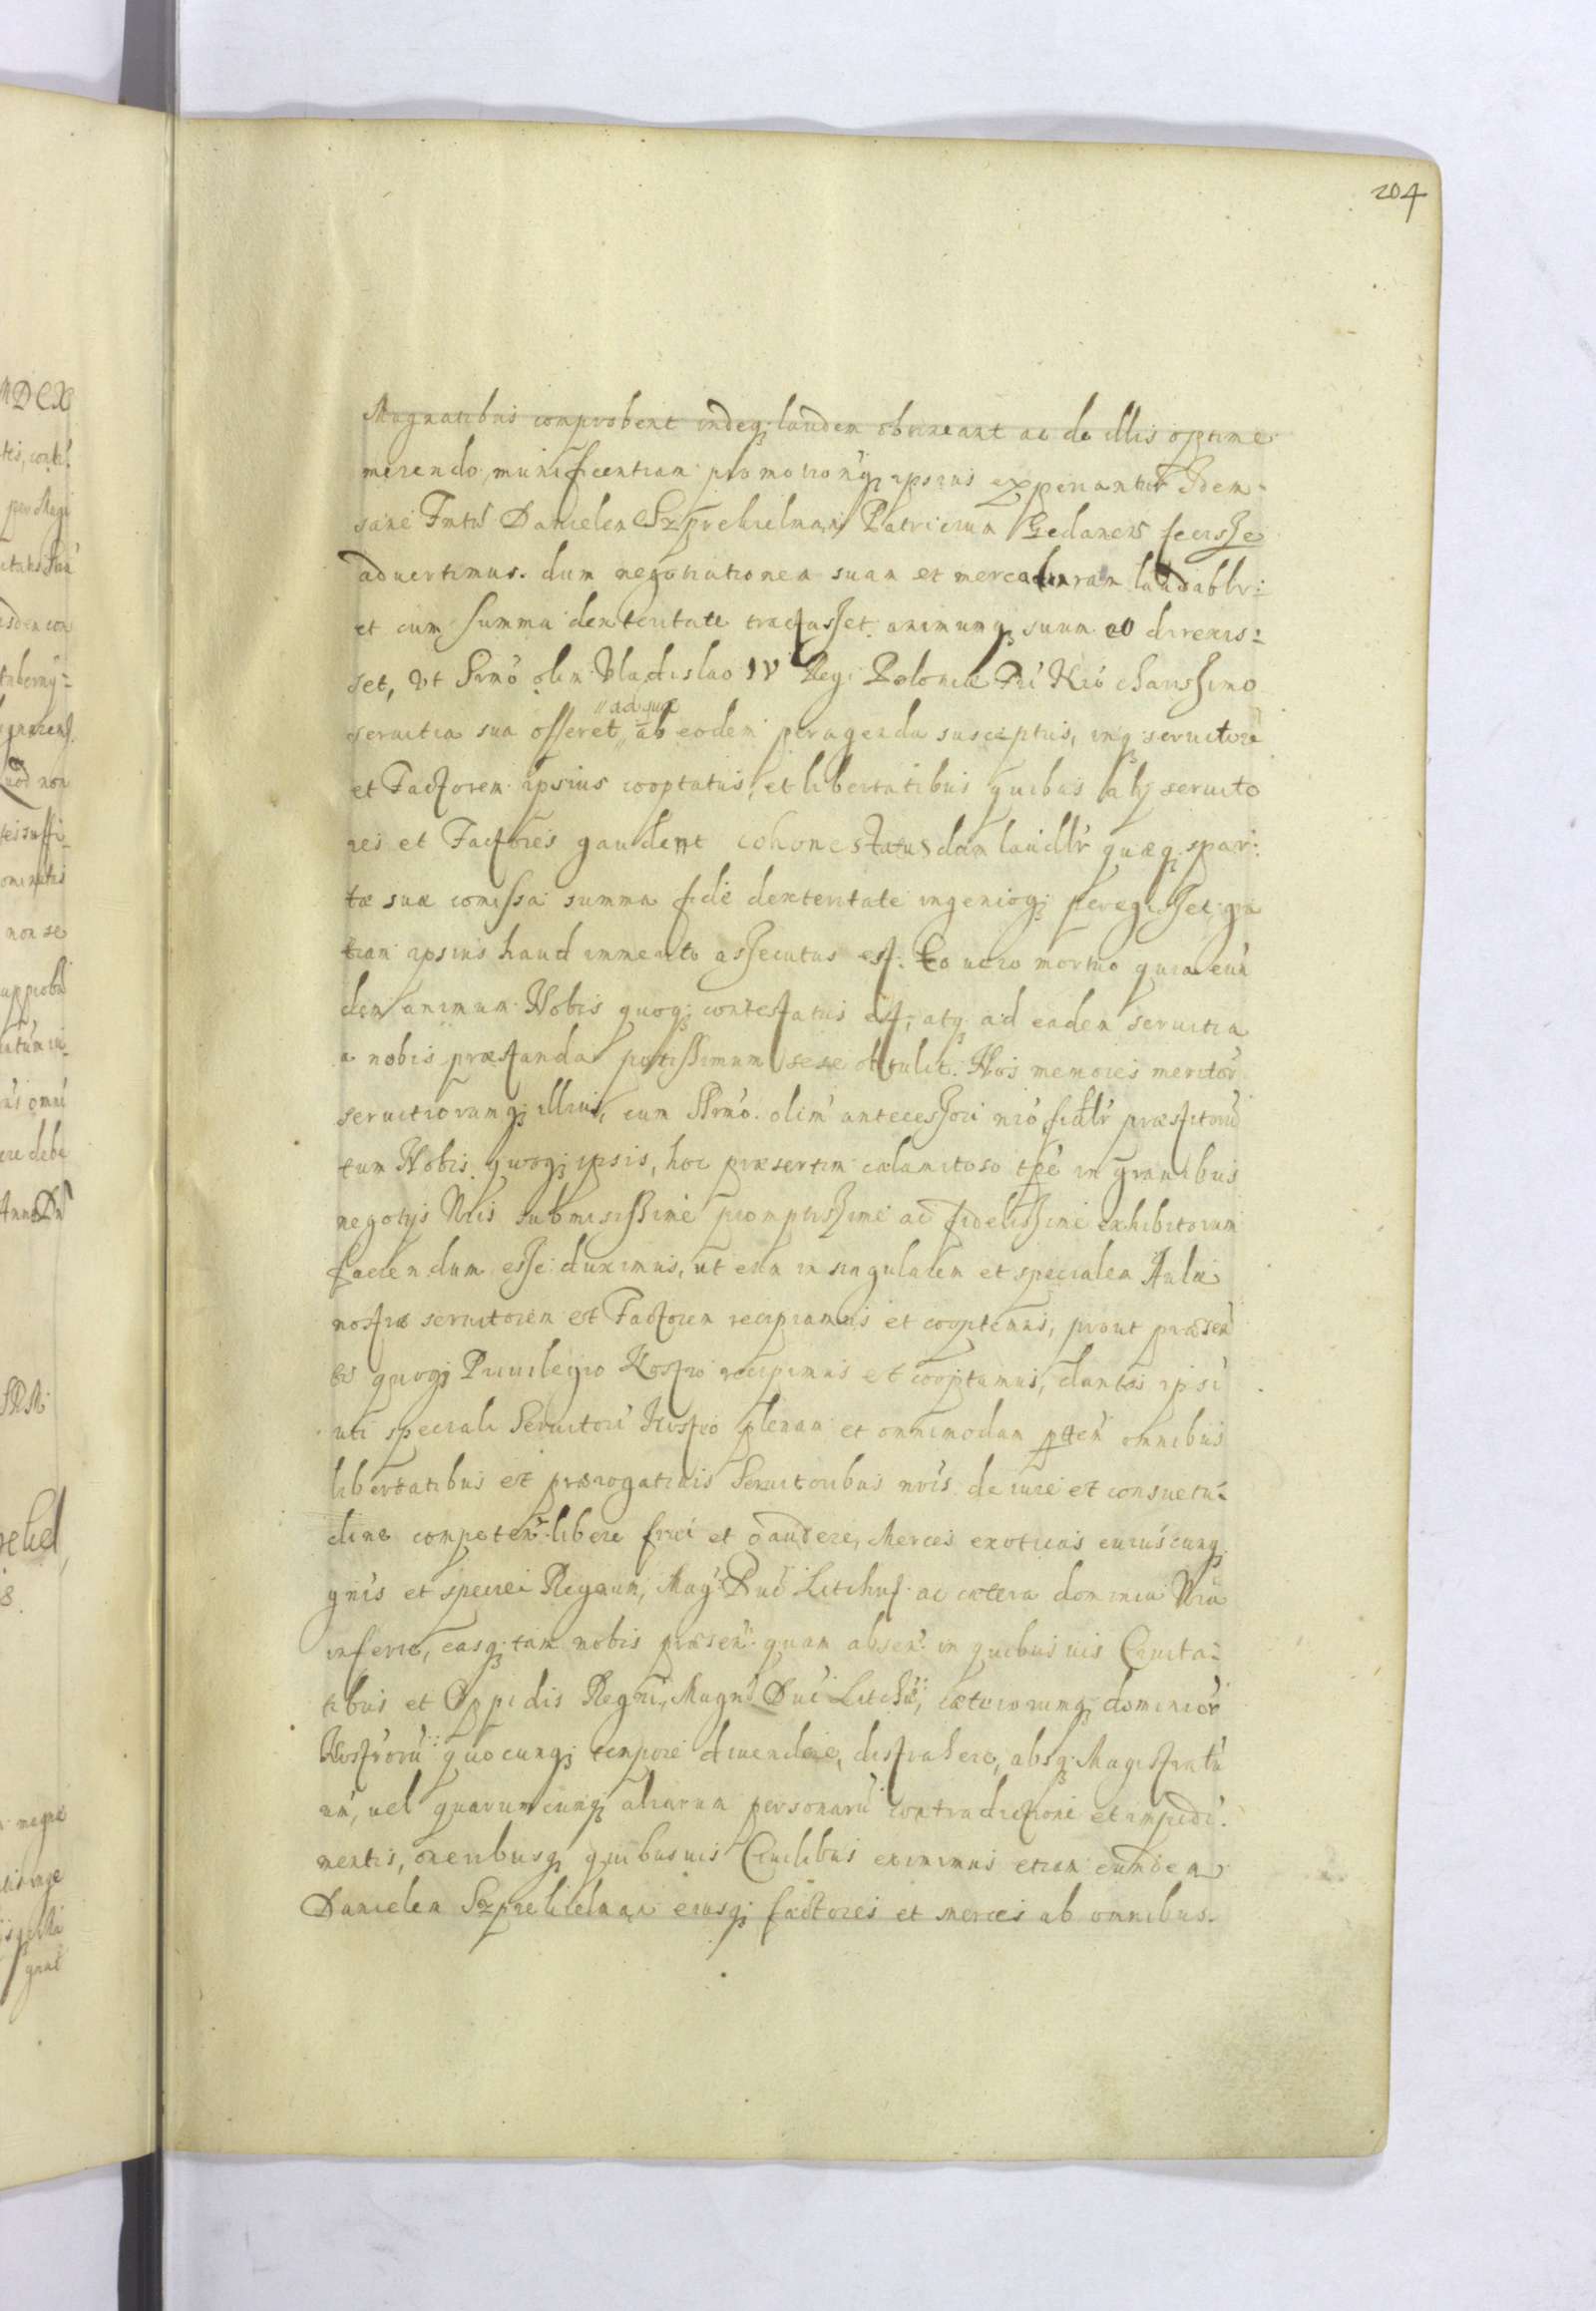 204
Magnatibus comprobent indeq; laudem obtineant ac de illis optime
merendo munificentiam promotionéq; ipsius experiantur Idem
sane Fmtũ Danielem Szprehelman Patricium Gedanens fecisse
aduertimus. dum negotiationem suam et mercaturam laudablr:
et cum summa dexteritate tractasset. animumq; suum eo direxis:
set, vt Srmõ olim Vladislao IV Regi Poloniæ Fri Nrõ charissimo
seruitia sua offeret, ab eodem peragenda susceptus, inq; seruitorẽ
"ad suæ
et Factorem ipsius cooptatus, et libertatibus quibus alij seruito
res et Factores gaudent cohonestatus dum laudlr quæq; spar:
tæ suæ comissa summa fide dexteritate ingenioq; peregisset gra
tiam ipsius haud immerito assecutus est. Eo uero mortuo quia eun
dem animum Nobis quoq; contestatus est, atq; ad eadem seruitia
a nobis præstanda potissimum sese obtulit. Nos memores meritor
seruitiorumq; illius, cum Srmõ. olim antecessori nrõ fidelr præstitorũ
tum Nobis quoq; ipsis, hoc præsertim calamitoso tpẽ in grauibus
negotijs Nris submississime promptissime ac fidelissime exhibitorum
faciendum esse duximus, ut eum in singularem et specialem Aulæ
nostræ seruitorem et Factorem recipiamus et cooptemus, prout præsen
tis quoq; Priuilegio Nostro recipimus et cooptamus, dantes ipsi
uti speciali Seruitori Nostro plenam et omnimodam pttem omnibus
libertatibus et prærogatiuis Seruitoribus nris de iure et consuetu:
dine competen: libere frui et gaudere, Merces exoticas cuiuscunq;
gnis et speciei Regnum, Mag: Duc Litchuæ ac cætera dominia Nra
inferre, easq; tam nobis præsen: quam absen: in quibusuis Ciuita:
tibus et Oppidis Regni, Magni Duc Litchũ, cæterorumq; dominior
Nostrorũ quocunq; tempore diuendere, distrahere, absq; Magistratu
um, uel quarumcunq; aliarum personarũ contradictione et impedi:
mentis, oneribusq; quibusuis Ciuilibus eximimus etiam eundem
Danielem Szprehelman eiusq; factores et merces ab omnibus